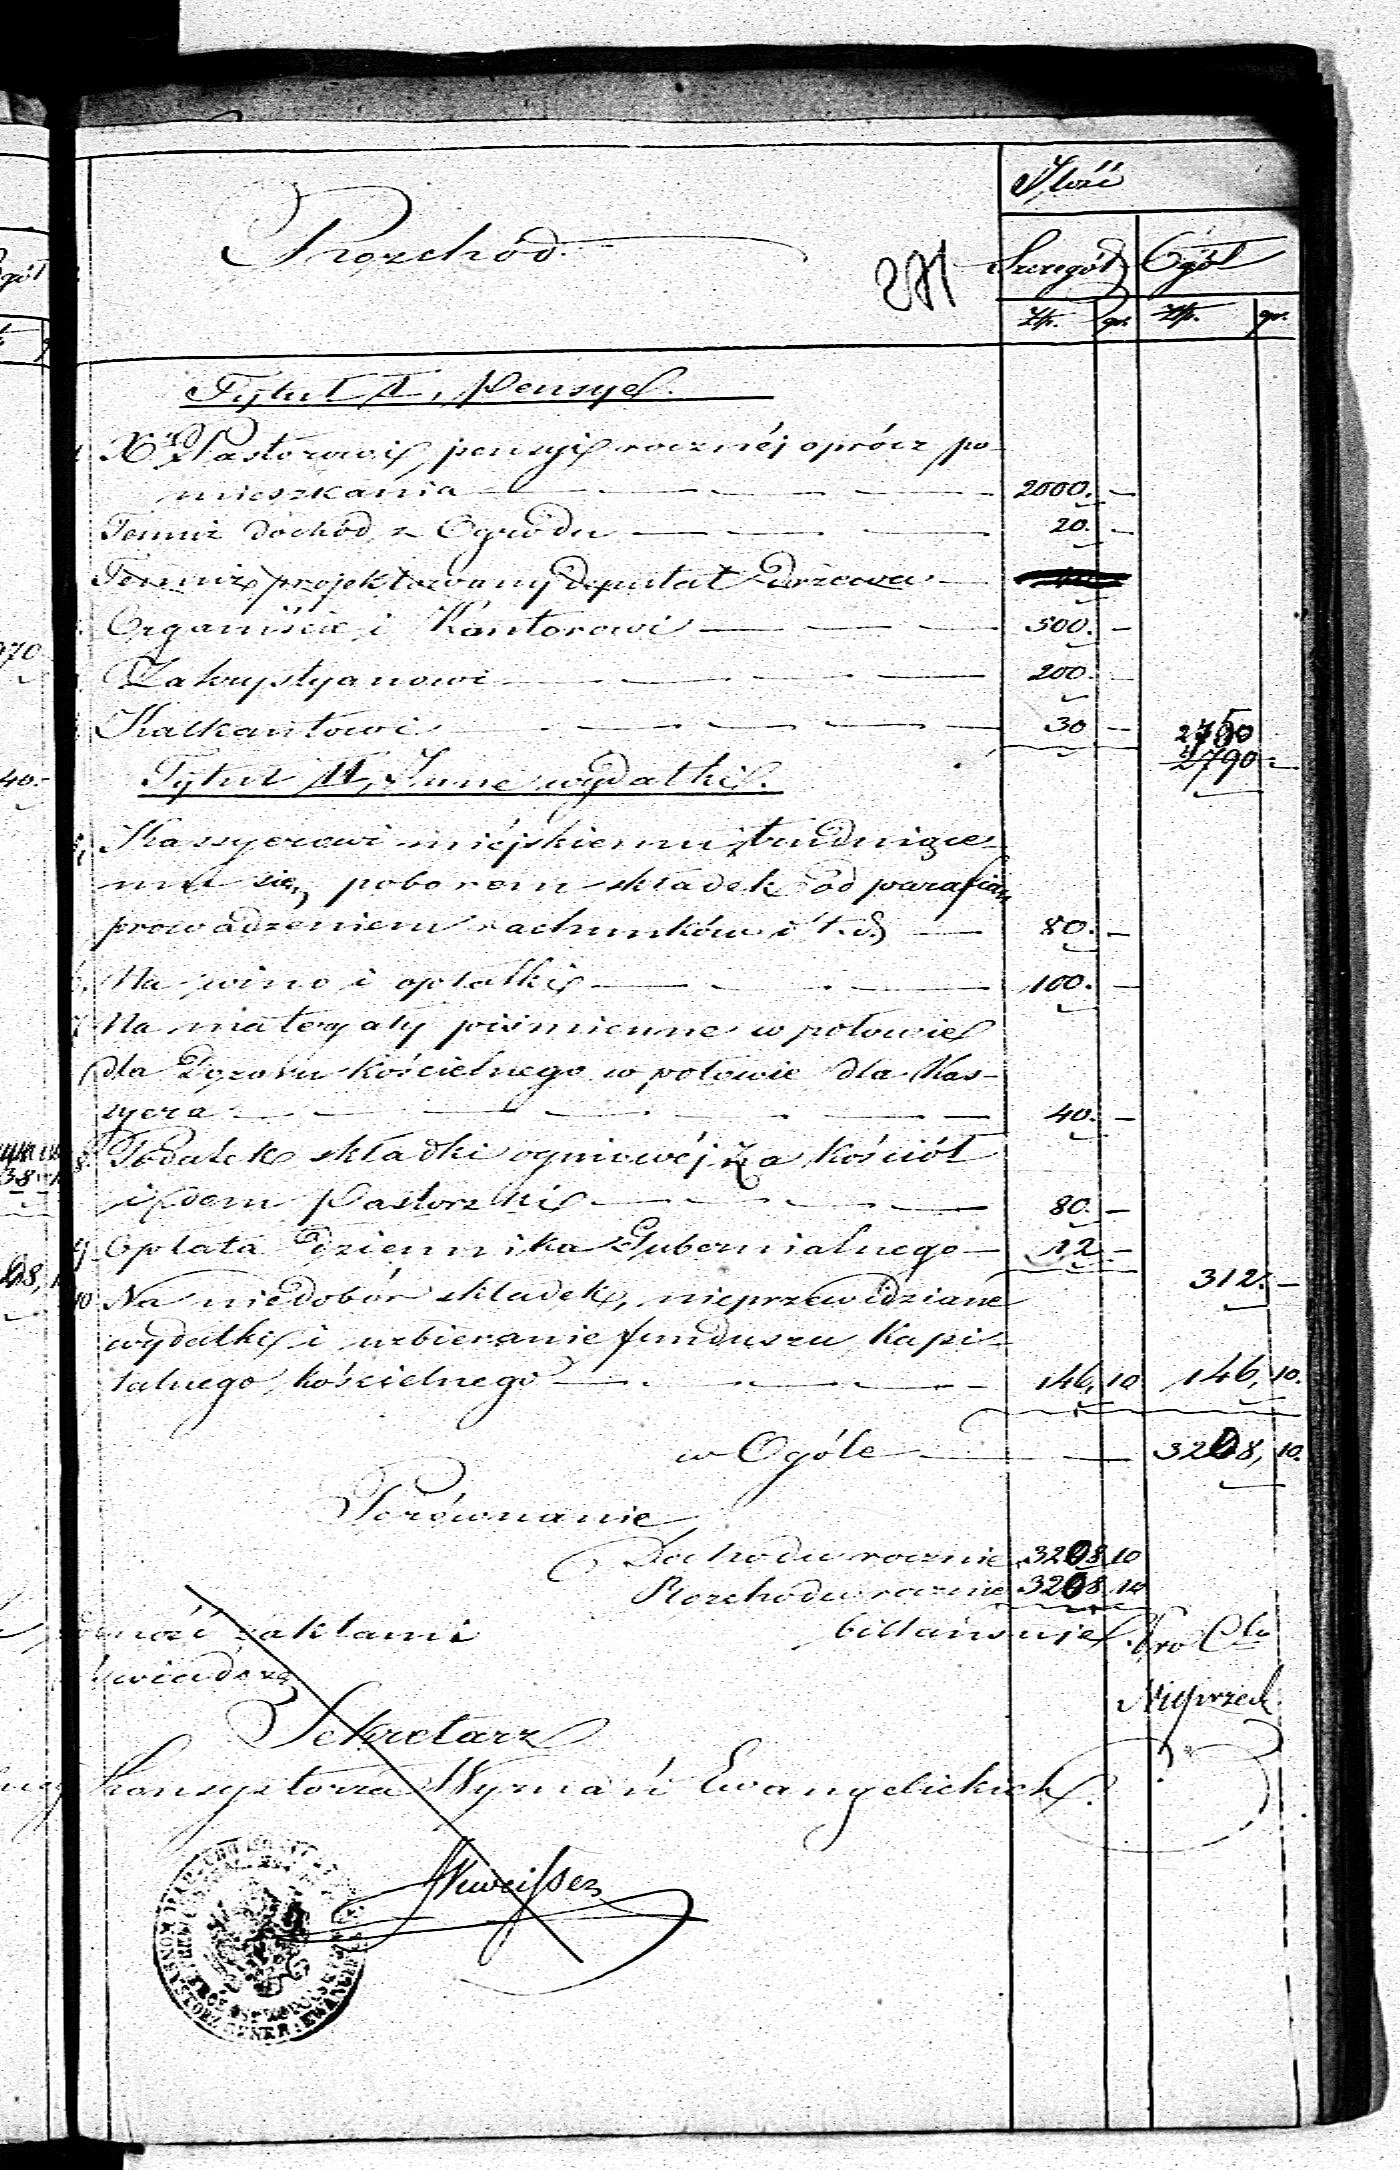 Ilość
Rozchód.
271
Szczegół Ogół
Złp. gr. Złp. gr.
Tytuł I, Pensye.
1. Xu Pastorowi, pensyi rocznéj oprócz po-
mieszkania 2000. -
Temuż dochód z Ogrodu 20. -
Temuż projektowany deputat drzewa
Organiście i Kantorowi 500. -
Zakrystyanowi 200. -
Kalkantowi 30 - 2750
2790 -
Tytuł II, Inne wydatki.
5, Kassyerowi miéjskiemu, trudniące-
mu się poborem składek od parafian
prowadzeniem rachunków i t. d. 80. -
6. Na wino i opłatki 100. -
7. Na materyały piśmienne w połowie
dla Dozoru kościelnego w połowie dla Kas-
syera 40. -
8. Podatek składki ogniowéj za kościół
i dom Pastorski 80. -
9. Opłata Dziennika Gubernialnego 12 - 312. -
10 Na niedobór składek, nieprzewidziane
wydatki i uzbieranie funduszu Kapi-
talnego kościelnego 146, 10 146, 10.
w Ogóle 3208, 10.
Porównanie
Dochodu rocznie 3208 10
Rozchodu rocznie 3208 10
billansuje. Pro
z aktami
świadczę
Sekretarz
Konsystorza Wyznań Ewangelickich.